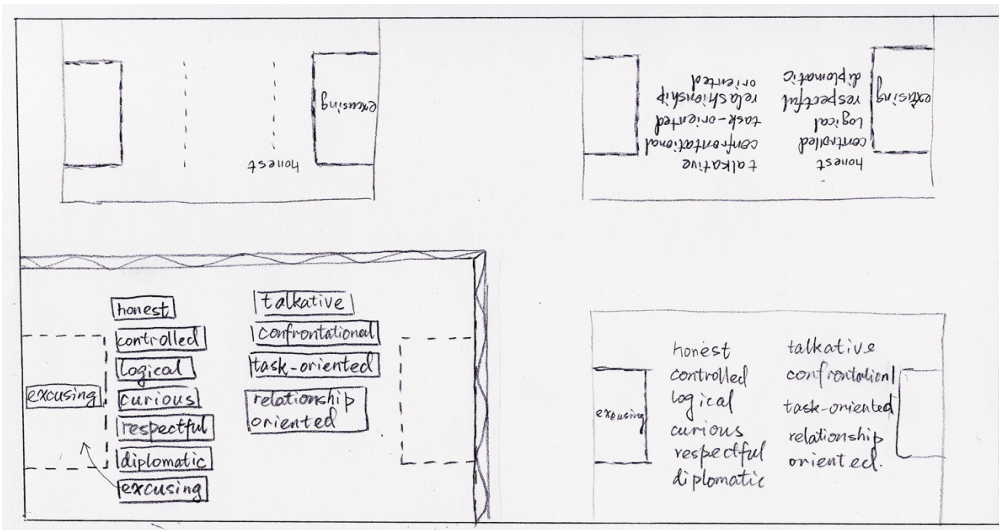 excusing
honest
excusing
honest
controlled
logical
respectful
diplomatic
talkative
confrontational
task-oriented
relashionship
oriented
honest
controlled
logical
curious
respectful
diplomatic
excusing
excusing
talkative
confrontational
task-oriented
relationship
oriented
honest
controlled
logical
curious
respectful
diplomatic
talkative
task-oriented
relationship
oriented.